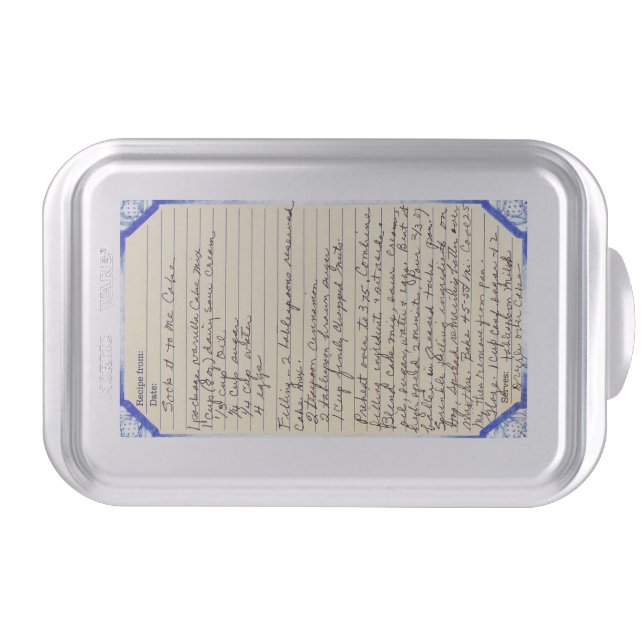 NORDIC WARE®
Recipe from:
Date:
Sock it to me Cake
1 package vanilla Cake mix
1 cup (8oz) dairy sour cream
1/3 cup oil
1/4 cup sugar
1/4 cup water
4 eggs
Filling - 2 tablespoons reserved
Cake mix.
2 teaspoon Cinnamon
2 tablespoon brown sugar
1 cup finely chopped nuts
Preheat oven to 375. Combine
filling ingredients & set aside.
Blend cake mix, sour cream,
oil, sugar, water & eggs. Beat at
high speed 2 minutes. Pour 2/3 of
batter in greased tube pan.
Sprinkle filling ingredients on
top. Spread remaining batter over
mixture. Bake 45-55 Mi. Cool 25
Then remove from pan.
Glaze 1 cup conf sugar & 2
tablespoons milk
Serves:
over cake